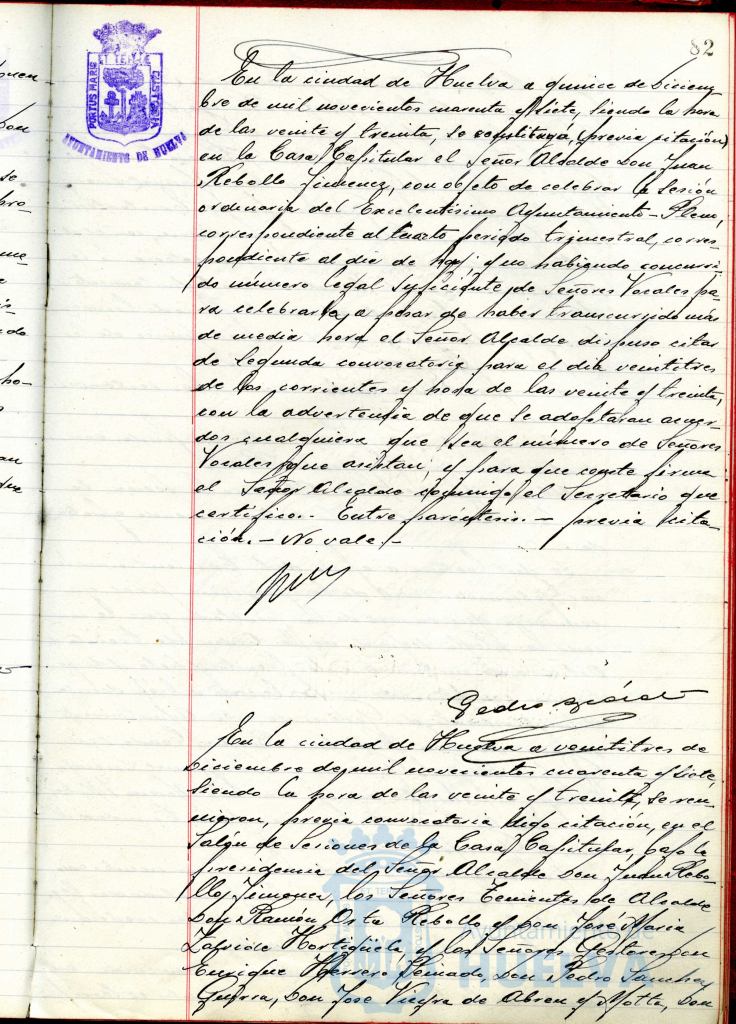 82
PORTUS MARIS
ET TERRE
CUSTODIA
AYUNTAMIENTO DE HUELVA
En la ciudad de Huelva a quince de Diciem-
bre de mil novecientos cuarenta y siete, siendo la hora
de las veinte y treinta, se constituye, (previa citación)
en la Casa Capitular el Señor Alcalde Don Juan
Rebollo Jimenez, con objeto de celebrar la sesión
ordinaria del Excelentísimo Ayuntamiento-Pleno,
correspondiente al cuarto período trimestral, corres-
pondiente al dia de hoy; y no habiendo concurri-
do número legal suficiente de Señores Vocales pa-
ra celebrarla, a pesar de haber transcurrido más
de media hora el Señor Alcalde dispuso citar
de segunda convocatoria para el dia veintitres
de los corrientes y hora de las veinte y treinta,
con la advertencia de que se adoptaran acuer-
dos cualquiera que sea el número de Señores
Vocales que asistan; y para que conste firma
el Señor Alcalde conmigo el Secretario que
certifico.- Entre paréntesis.- previa cita-
ción.- No vale.-
Pedro
En la ciudad de Huelva a veintitres de
Diciembre de mil novecientos cuarenta y siete,
siendo la hora de las veinte y treinta, se reu-
nieron, previa convocatoria digo citación, en el
Salón de Sesiones de la Casa Capitular, bajo la
presidencia del Señor Alcalde Don Juan Rebo-
llo Jimenez, los Señores Tenientes de Alcalde
Don Ramón Orta Rebollo y Don José Maria
Hortigüela, y los Señores Gestores Don
Enrique Herrero Don Pedro Sanchez
Guerra, Don Jose Vieyra de Abreu y Motta, Don
Ayuntamiento de
HUELVA